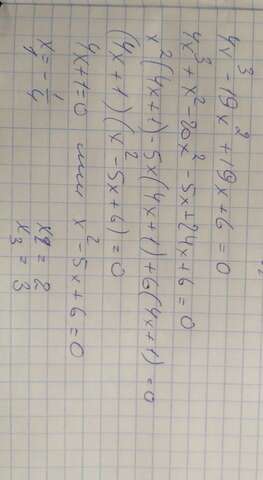 4x³ - 19x² + 19x + 6 = 0
4x³ + x² - 20x² - 5x + 24x + 6 = 0
x²(4x+1) - 5x(4x+1) + 6(4x+1) = 0
(4x+1)(x² - 5x + 6) = 0
4x+1=0 или x² - 5x + 6 = 0
x₁ = - 1/4 x₂ = 2
x₃ = 3